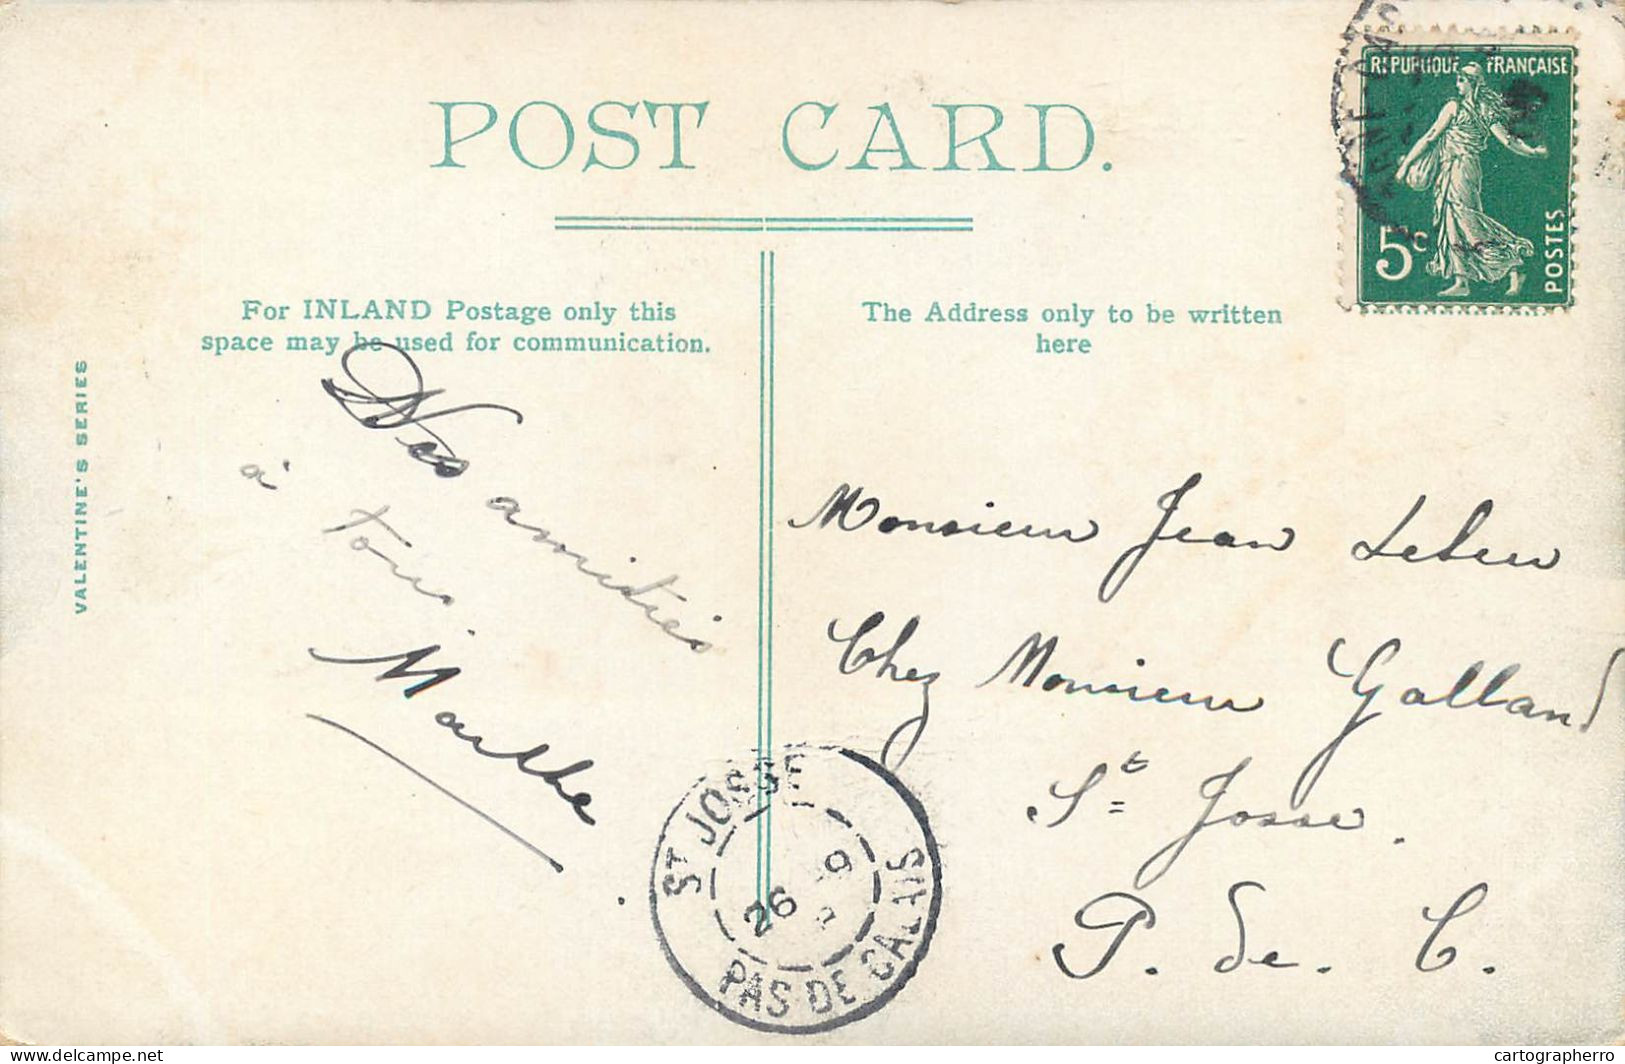 POST CARD.
REPUBLIQUE FRANÇAISE
5c
POSTES
For INLAND Postage only this
space may be used for communication.
The Address only to be written
here
VALENTINE'S SERIES
Nos amitiés
à tous
Marthe
Monsieur Jean
Chez Monsieur Galland
St Josse.
P. de. C.
ST JOSSE
26 -9
PAS DE CALAIS
delcampe.net
cartographerro